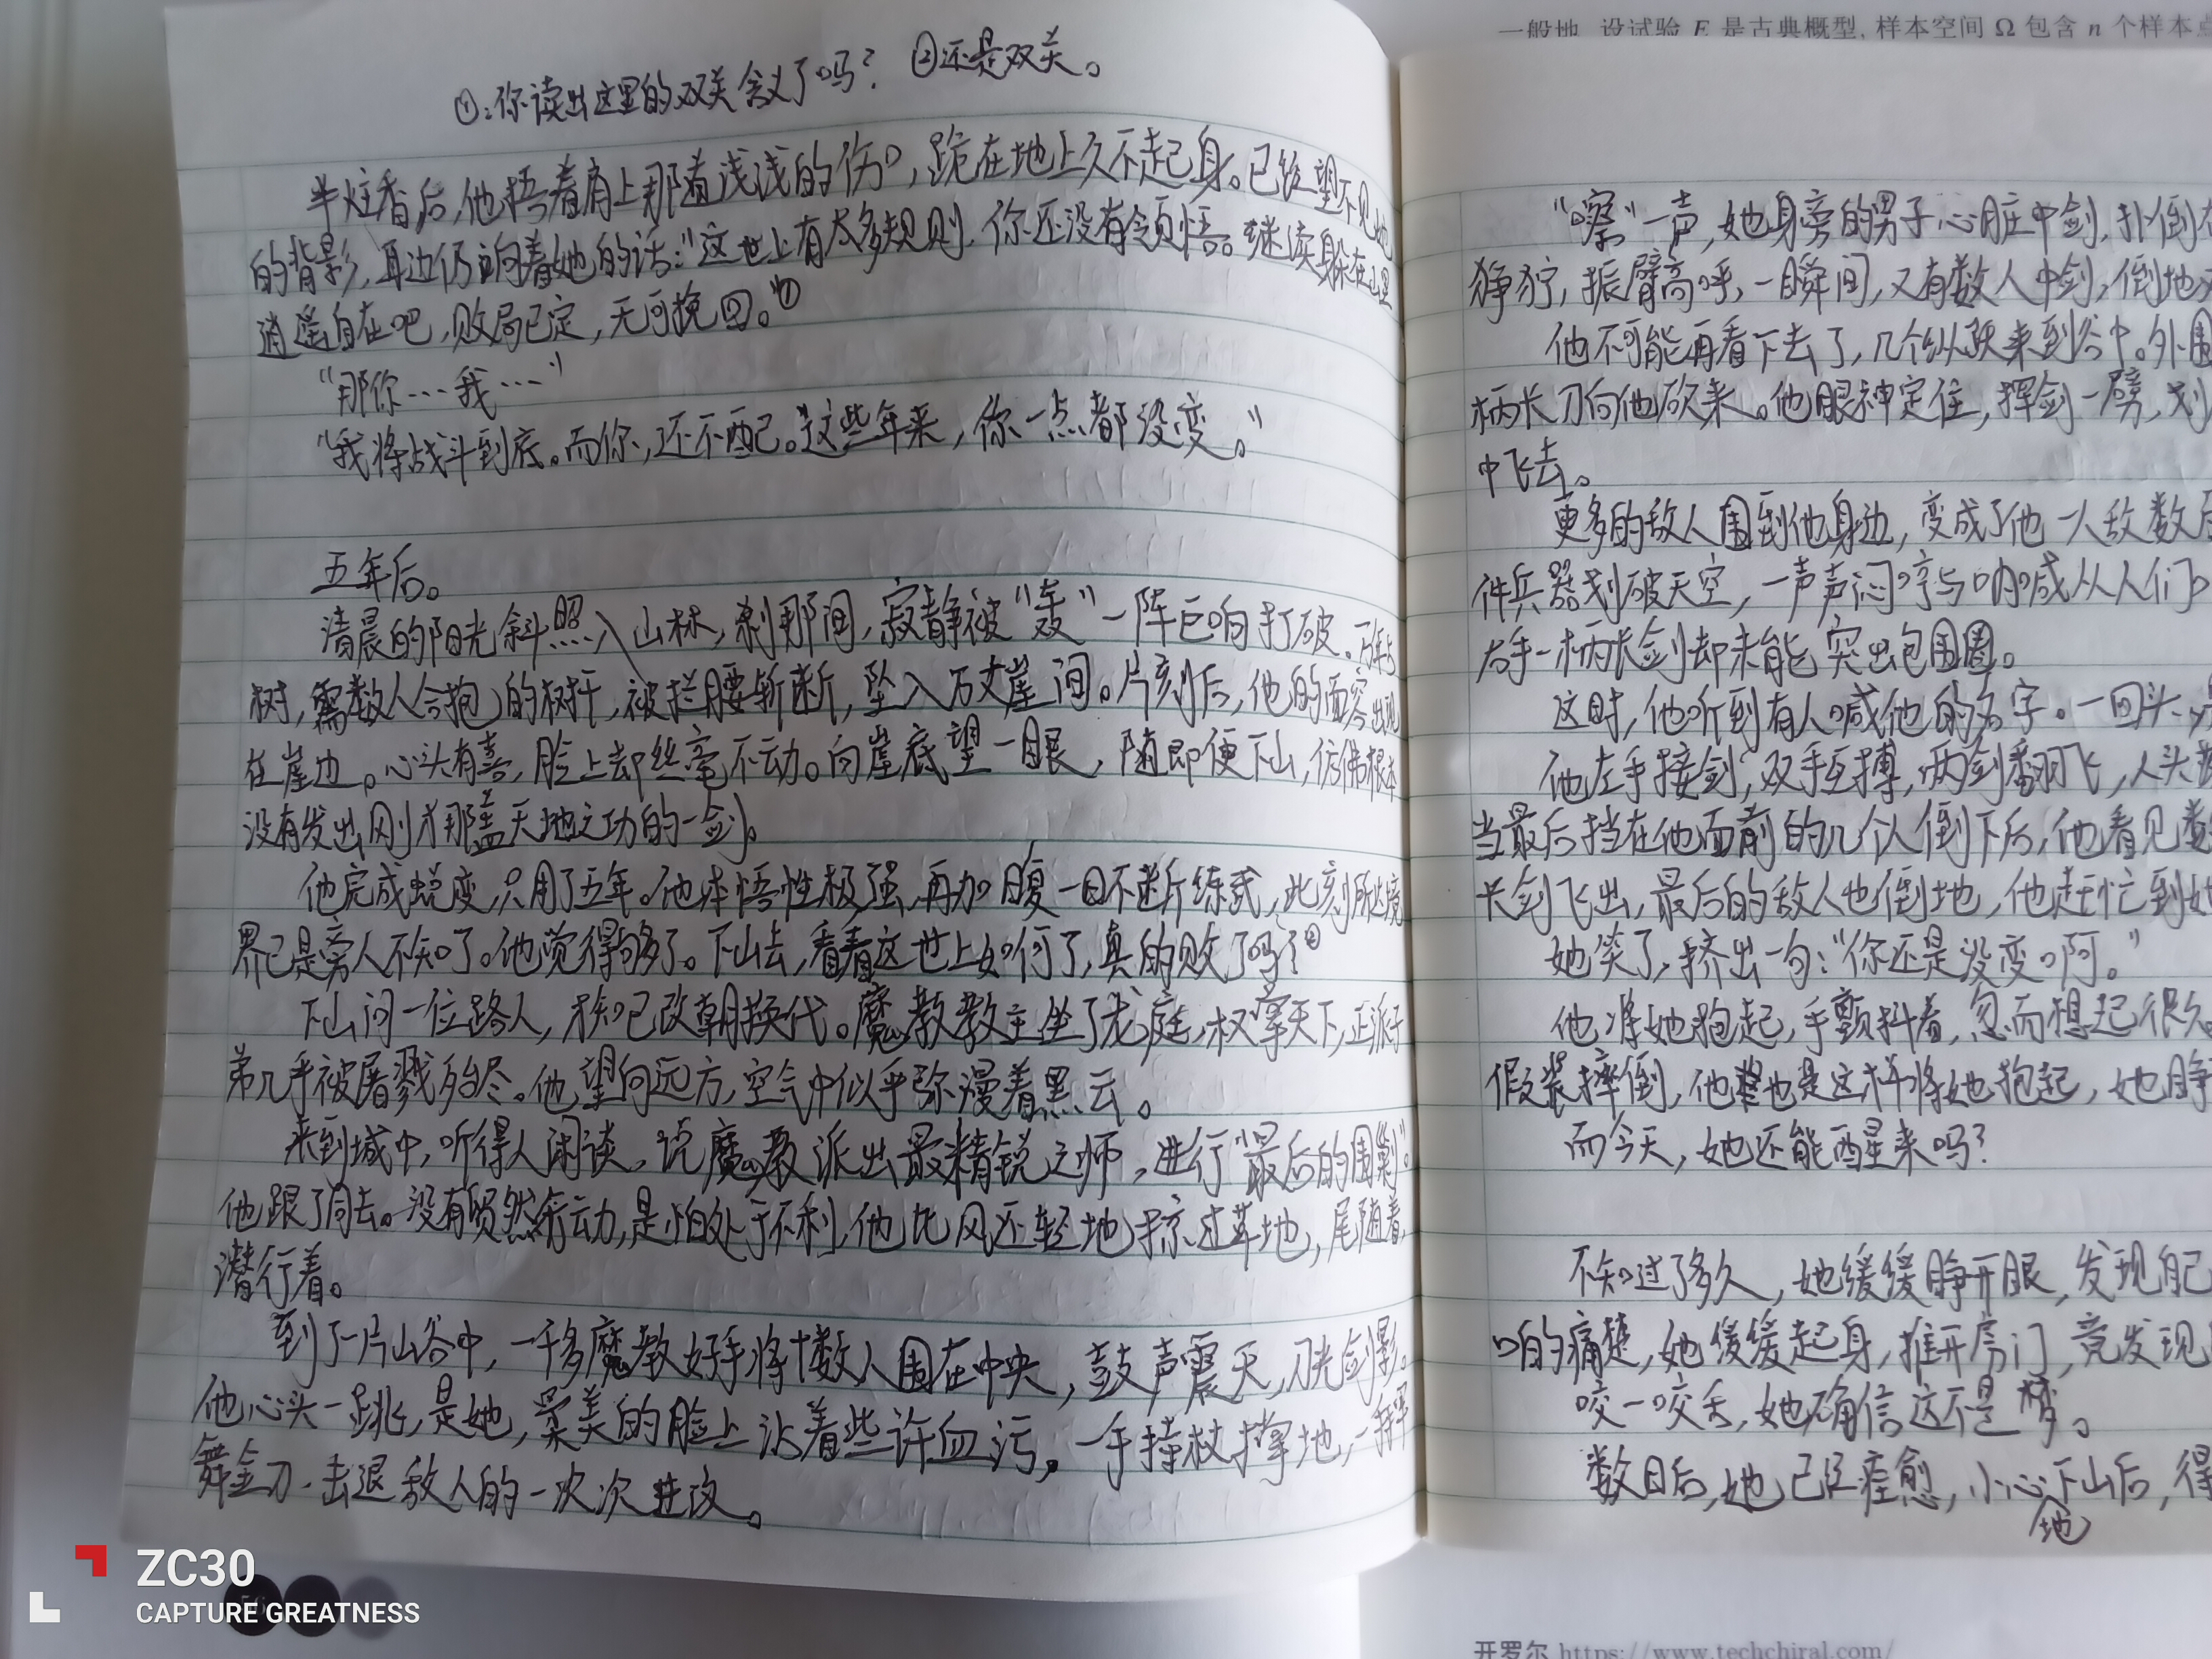 ①:你读出这里的双关含义了吗? ②还是双关。
半炷香后,他捂着肩上那道浅浅的伤口,跪在地上久不起身。已经望不见她
的背影,耳边仍响着她的话:"这世上有太多规则,你还没有领悟。继续躲在这里
逍遥自在吧,败局已定,无可挽回。"①
"那你……我……"
"我将战斗到底。而你,还不配。这些年来,你一点都没变。"
五年后。
清晨的阳光斜照入山林,刹那间,寂静被"轰"一阵巨响打破。
树,需数人合抱的树干,被拦腰斩断,坠入万丈崖间。片刻后,他的面容出现
在崖边。心头有喜,脸上却丝毫不动。向崖底望一眼,随即便下山,仿佛根本
没有发出刚才那盖天地之功的一剑。
他完成蜕变,只用了五年。他本悟性极强,再加日复一日不断练武,此刻所达境
界已是旁人不知了。他觉得够了。下山去,看看这世上如何了,真的败了吗?②
下山问一位路人,才知已改朝换代。魔教教主坐了龙庭,权掌天下,正派子
弟几乎被屠戮殆尽。他望向远方,空气中似乎弥漫着黑云。
来到城中,听得人闲谈,说魔教派出最精锐之师,进行"最后的围剿"。
他跟了向去。没有贸然行动,是怕处于不利,他比风还轻地掠过草地,尾随着,
潜行着。
到了一片山谷中,一千多魔教好手将十数人围在中央,鼓声震天,刀光剑影。
他心头一跳,是她,柔美的脸上沾着些许血污。一手持杖撑地,一手挥
舞金刀,击退敌人的一次次进攻。
一般地,设试验 E 是古典概型,样本空间 Ω 包含 n 个样本点
"嚓"一声,她身旁的男子心脏中剑,扑倒在
狰狞,振臂高呼,一瞬间,又有数人中剑,倒地
他不可能再看下去了,几个纵跃来到谷中。外围
柄长刀向他砍来。他眼神定住,挥剑一劈,划
中飞去。
更多的敌人围到他身边,变成了他一人敌数
件兵器划破天空,一声声闷哼与呐喊从人们口
右手一柄长剑却未能突出包围圈。
这时,他听到有人喊他的名字。一回头,
他左手接剑,双手互搏,两剑翻飞,人头
当最后挡在他面前的几个人倒下后,他看见
长剑飞出,最后的敌人也倒地,他赶忙到她
她笑了,挤出一句:"你还是没变啊。"
他将她抱起,手颤抖着,忽而想起很久
假装摔倒,他也是这样将她抱起,她睁
而今天,她还能醒来吗?
不知过了多久,她缓缓睁开眼,发现自己
的痛楚,她缓缓起身,推开房门,竟发现
咬一咬舌,她确信这不是梦。
数日后,她已经痊愈,小心地下山后,得
开罗尔 https://www.techchiral.com/
ZC30
CAPTURE GREATNESS